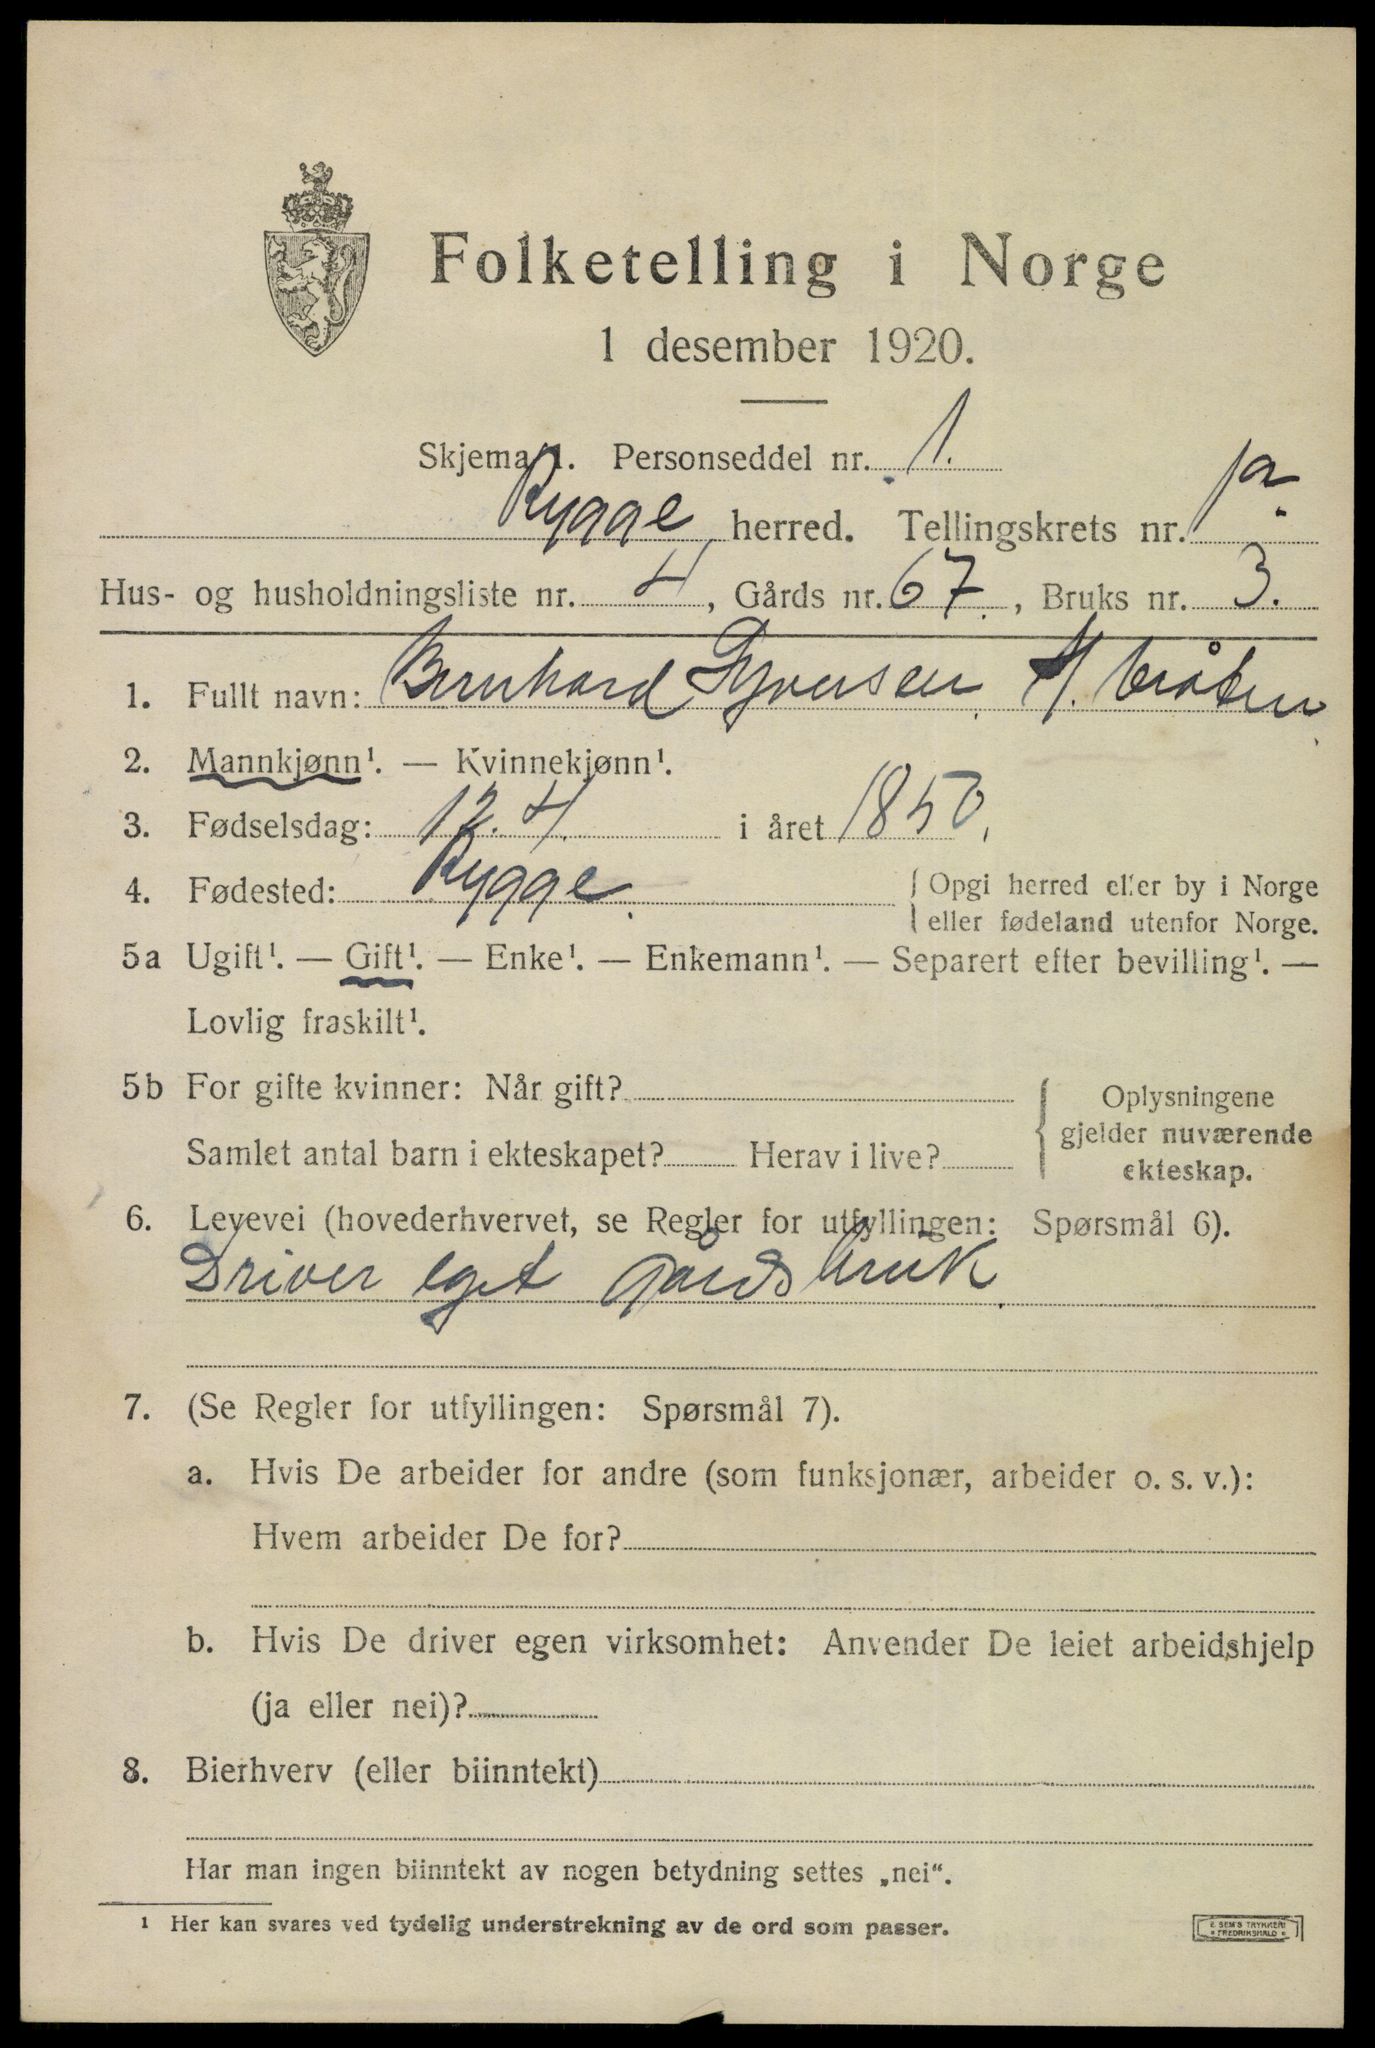 Folketelling i Norge
1 desember 1920.
Skjema 1. Personseddel nr. 1.
Rygge herred. Tellingskrets nr. 1a.
Hus- og husholdningsliste nr. 4, Gårds nr. 67., Bruks nr. 3.
1. Fullt navn: Bernhard Syversen
2. Mannkjønn¹. — Kvinnekjønn¹.
3. Fødselsdag: 12. 4. i året 1850.
4. Fødested: Rygge. Opgi herred eller by i Norge
eller fødeland utenfor Norge.
5a Ugift¹. — Gift¹. — Enke¹. — Enkemann¹. — Separert efter bevilling¹. —
Lovlig fraskilt¹.
5b For gifte kvinner: Når gift? Oplysningene
gjelder nuværende
Samlet antal barn i ekteskapet? Herav i live? ekteskap.
6. Levevei (hovederhvervet, se Regler for utfyllingen: Spørsmål 6).
Driver eget gårdsbruk
7. (Se Regler for utfyllingen: Spørsmål 7).
a. Hvis De arbeider for andre (som funksjonær, arbeider o. s. v.):
Hvem arbeider De for?
b. Hvis De driver egen virksomhet: Anvender De leiet arbeidshjelp
(ja eller nei)?
8. Bierhverv (eller biinntekt)
Har man ingen biinntekt av nogen betydning settes „nei“.
¹ Her kan svares ved tydelig understrekning av de ord som passer.
E SEM'S TRYKKERI
FREDRIKSHALD